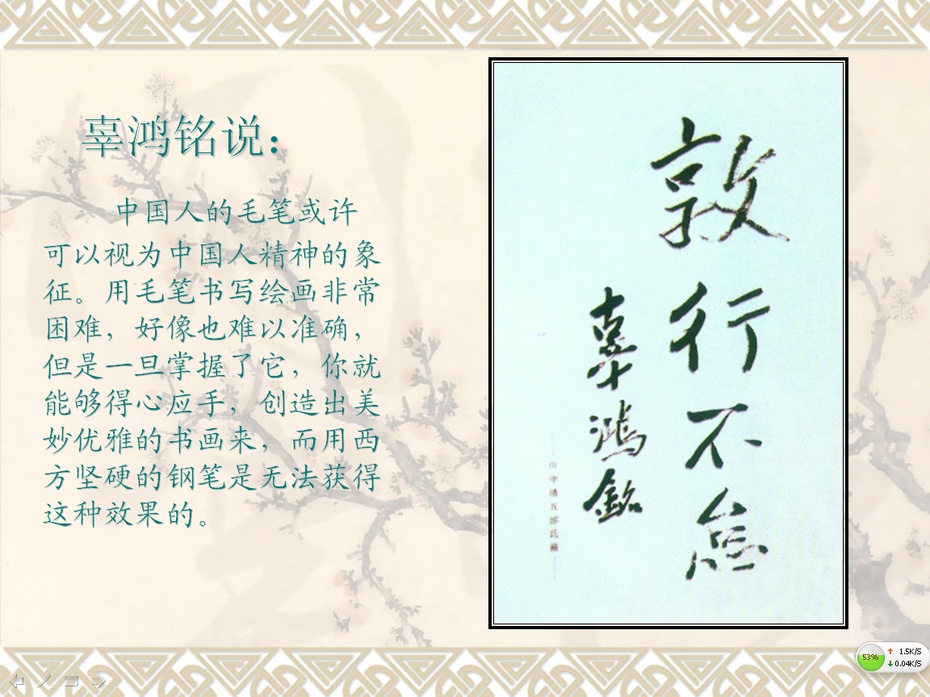 辜鸿铭说：
中国人的毛笔或许
可以视为中国人精神的象
征。用毛笔书写绘画非常
困难，好像也难以准确，
但是一旦掌握了它，你就
能够得心应手，创造出美
妙优雅的书画来，而用西
方坚硬的钢笔是无法获得
这种效果的。
敦行不怠
辜鸿銘
53%
1.5K/S
0.04K/S